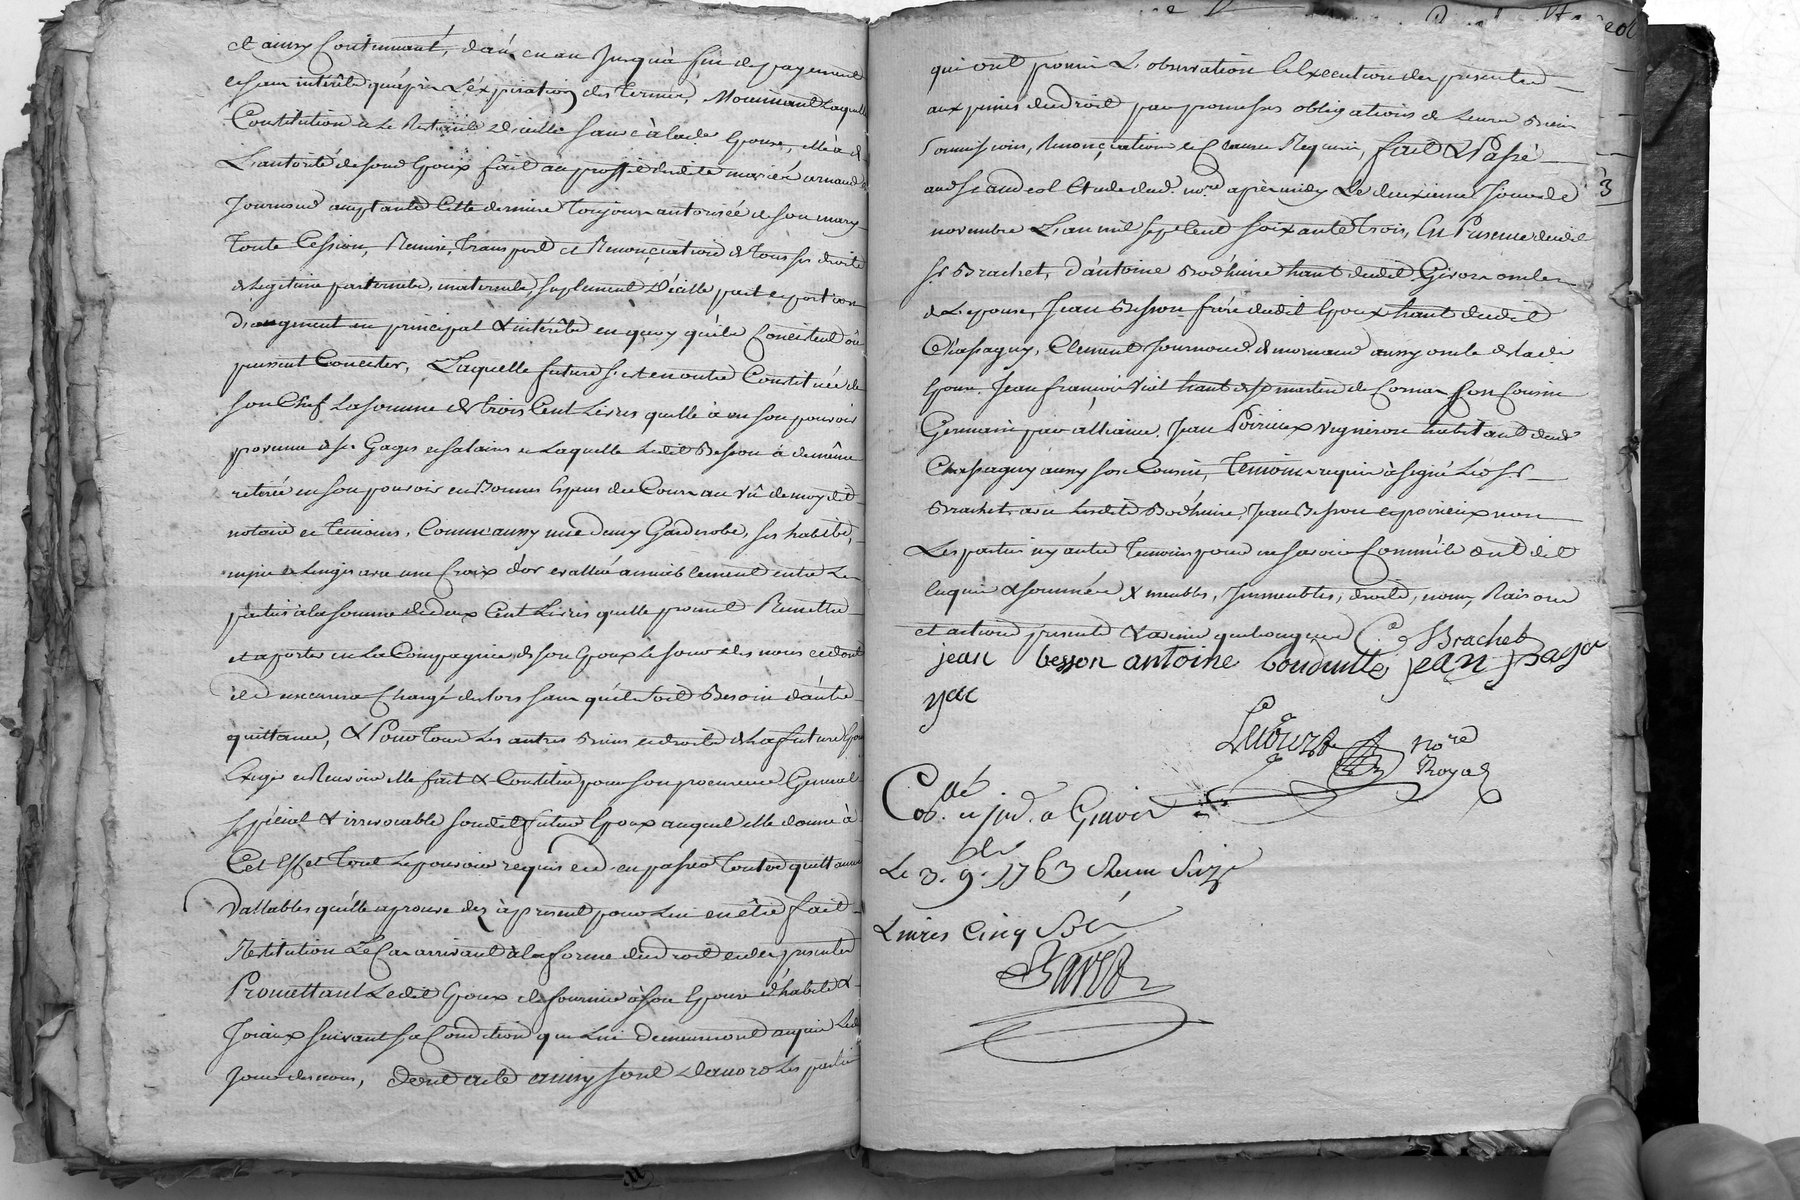 et ainsy Continuant, d'an en an Jusqu'à fin de payement
et sans intérêts qu'après L'expiration des termes, Moennant laquelle
Constitution de Le Restant d'icelle faite à lade Epouse, elle a de
L'autorité de son Epoux fait au proffit de de marie arnaud
Journoud acceptante Cette derniere Toujours autorisée de son mary
Toute Cession, Remise, transport et Renonciation de Tous ses droits
de Legitime paternels, maternels, suplement d'icelle part et portion
d'augment en principal & intérêts en quoy qu'ils Concistent ou
puissent Concister, Laquelle future s'est en outre Constituée de
son Chef La somme de trois Cent Livres qu'elle à en son pouvoir
provenue de ses Gages et salaires et Laquelle Ledit Besson à de même
retirée en son pouvoir en Bonnes Especes de Cours au vû de moy dit
notaire et Temoins, Comm'aussy une demy Garderobe, ses habits,
nipes et Linges avec une Croix d'or evallué amiablement entre Les
parties à la somme de deux Cent Livres qu'elle promet Remettre
et aporter en La Compagnie de son Epoux Le jour des noces et dont
il demeurera Chargé des lors sans qu'il soit Besoin d'autre
quittance, & Pour Tous Les autres Biens et droits de La future Epouse
Exiger et Recevoir elle fait & Constitue pour son procureur General
Special & irrevocable son dit futur Epoux auquel elle donne à
Cet Effet Tout Le pouvoir requis et d'en passer Toutes quittances
Vallables qu'elle aprouve dez à present pour Lui en être fait
Restitution Le Cas arrivant à la forme du droit et des presentes
Promettant Ledit Epoux de fournir à son Epouse d'habits &
Joiaux suivant sa Condition qui Lui demeureront acquis Ledit
Jour des noces, dont acte ainsy sont d'accord Les parties
qui ont promis L'observation & L'Execution des presentes
aux peines de droit par promesses obligations de Leurs Biens
soumissions, Renonciations et Clauses Requises, fait & Passé
3
novembre L'an mil sept Cent soixante Trois, En Presence dudit
Sr Brachet, d'antoine Bodhuire hant dudit Givors oncle
de L'epouse, Jean Besson frère dudit Epoux hant dudit
Chassagny, Clement Journoud de mornant aussy oncle de lade
Epouse Jean François Viel hant de st martin de Cornas son Cousin
Germain par alliance, Jean Poirieux vigneron habitant dudt
Chassagny aussy son Cousin, Temoins requis à signé Led Sr
Brachet, avec Lesdits Bodhuire, Jean Besson et poirieux non
Les parties ny autres Temoins pour ne savoir Comm'ils ont dit
enquis & sommés & meubles, Immeubles, droits, noms, Raisons
et actions presents & avenir quelconques C. Brachet
jean besson antoine bouduitte jean
Nore
Royal
Collé en jud. à Givors
Le 3. 9bre 1763 Receu Seize
Livres Cinq Sols